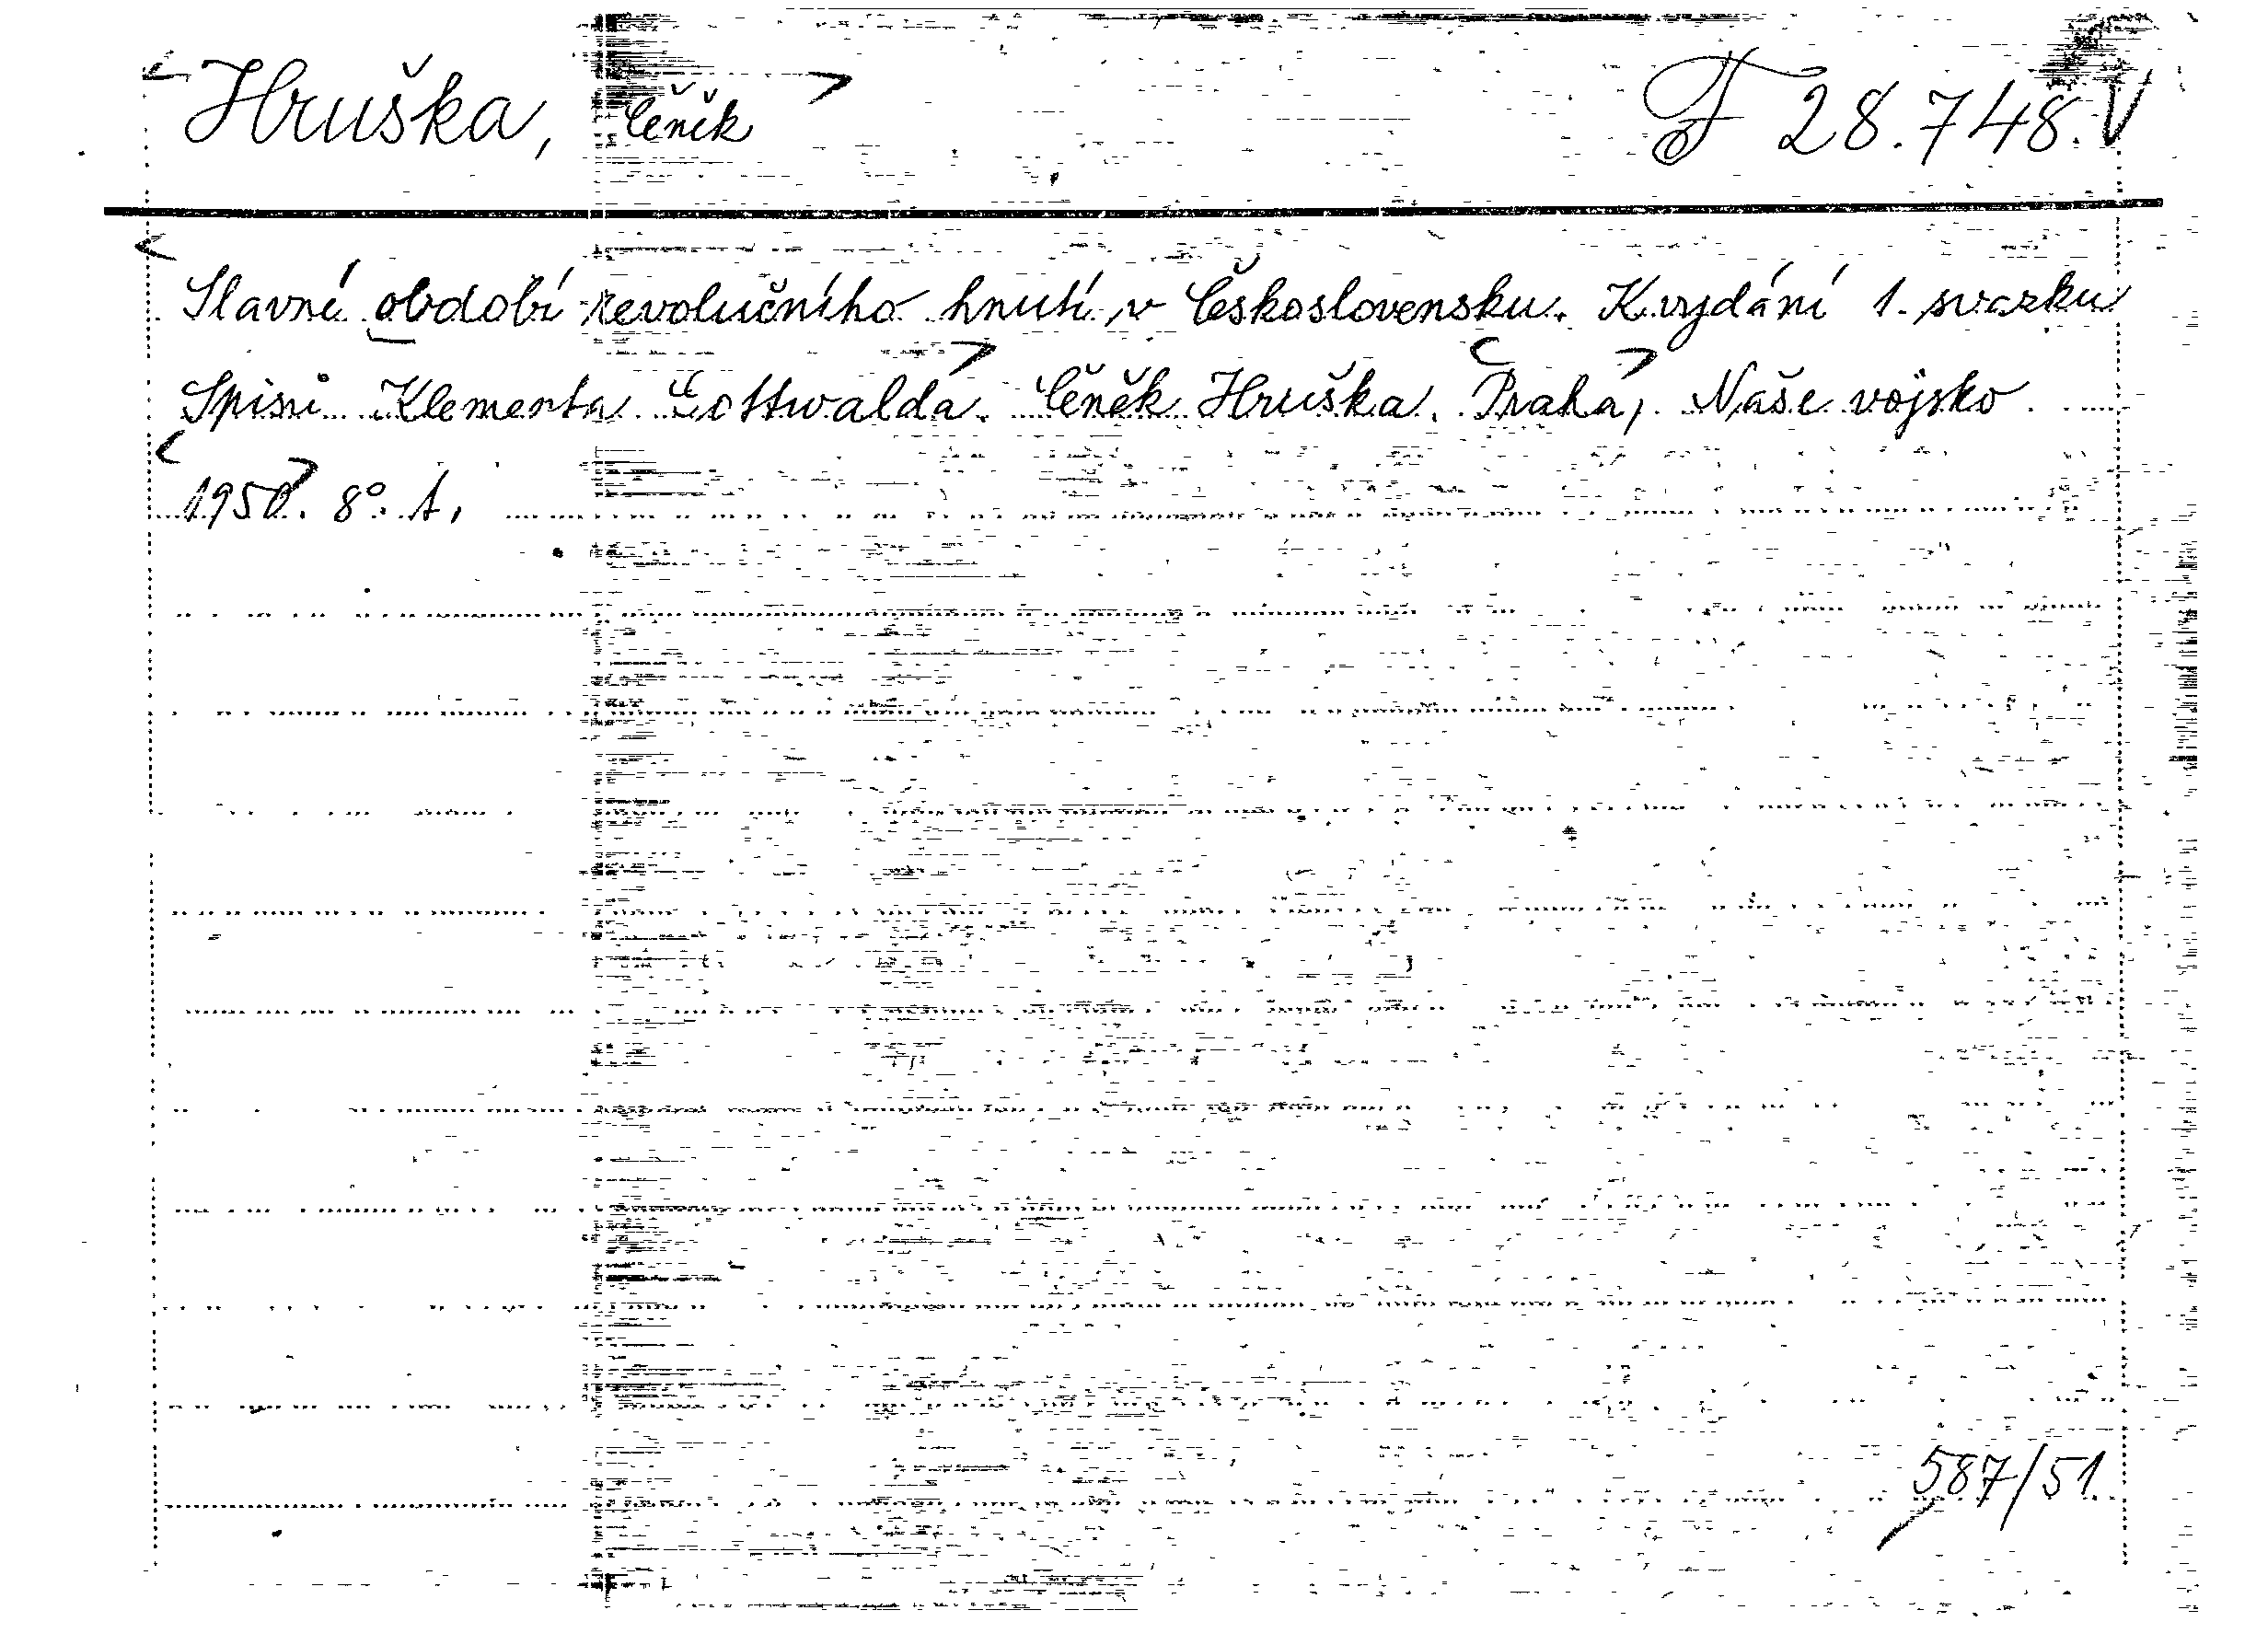 Hruška, Čeněk F 28.748.V
Slavné období revolučního hnutí v Československu. K vydání 1. svazku
Spisů Klementa Gottwalda. Čeněk Hruška. Praha, Naše vojsko
1950. 8°. s.
587/51